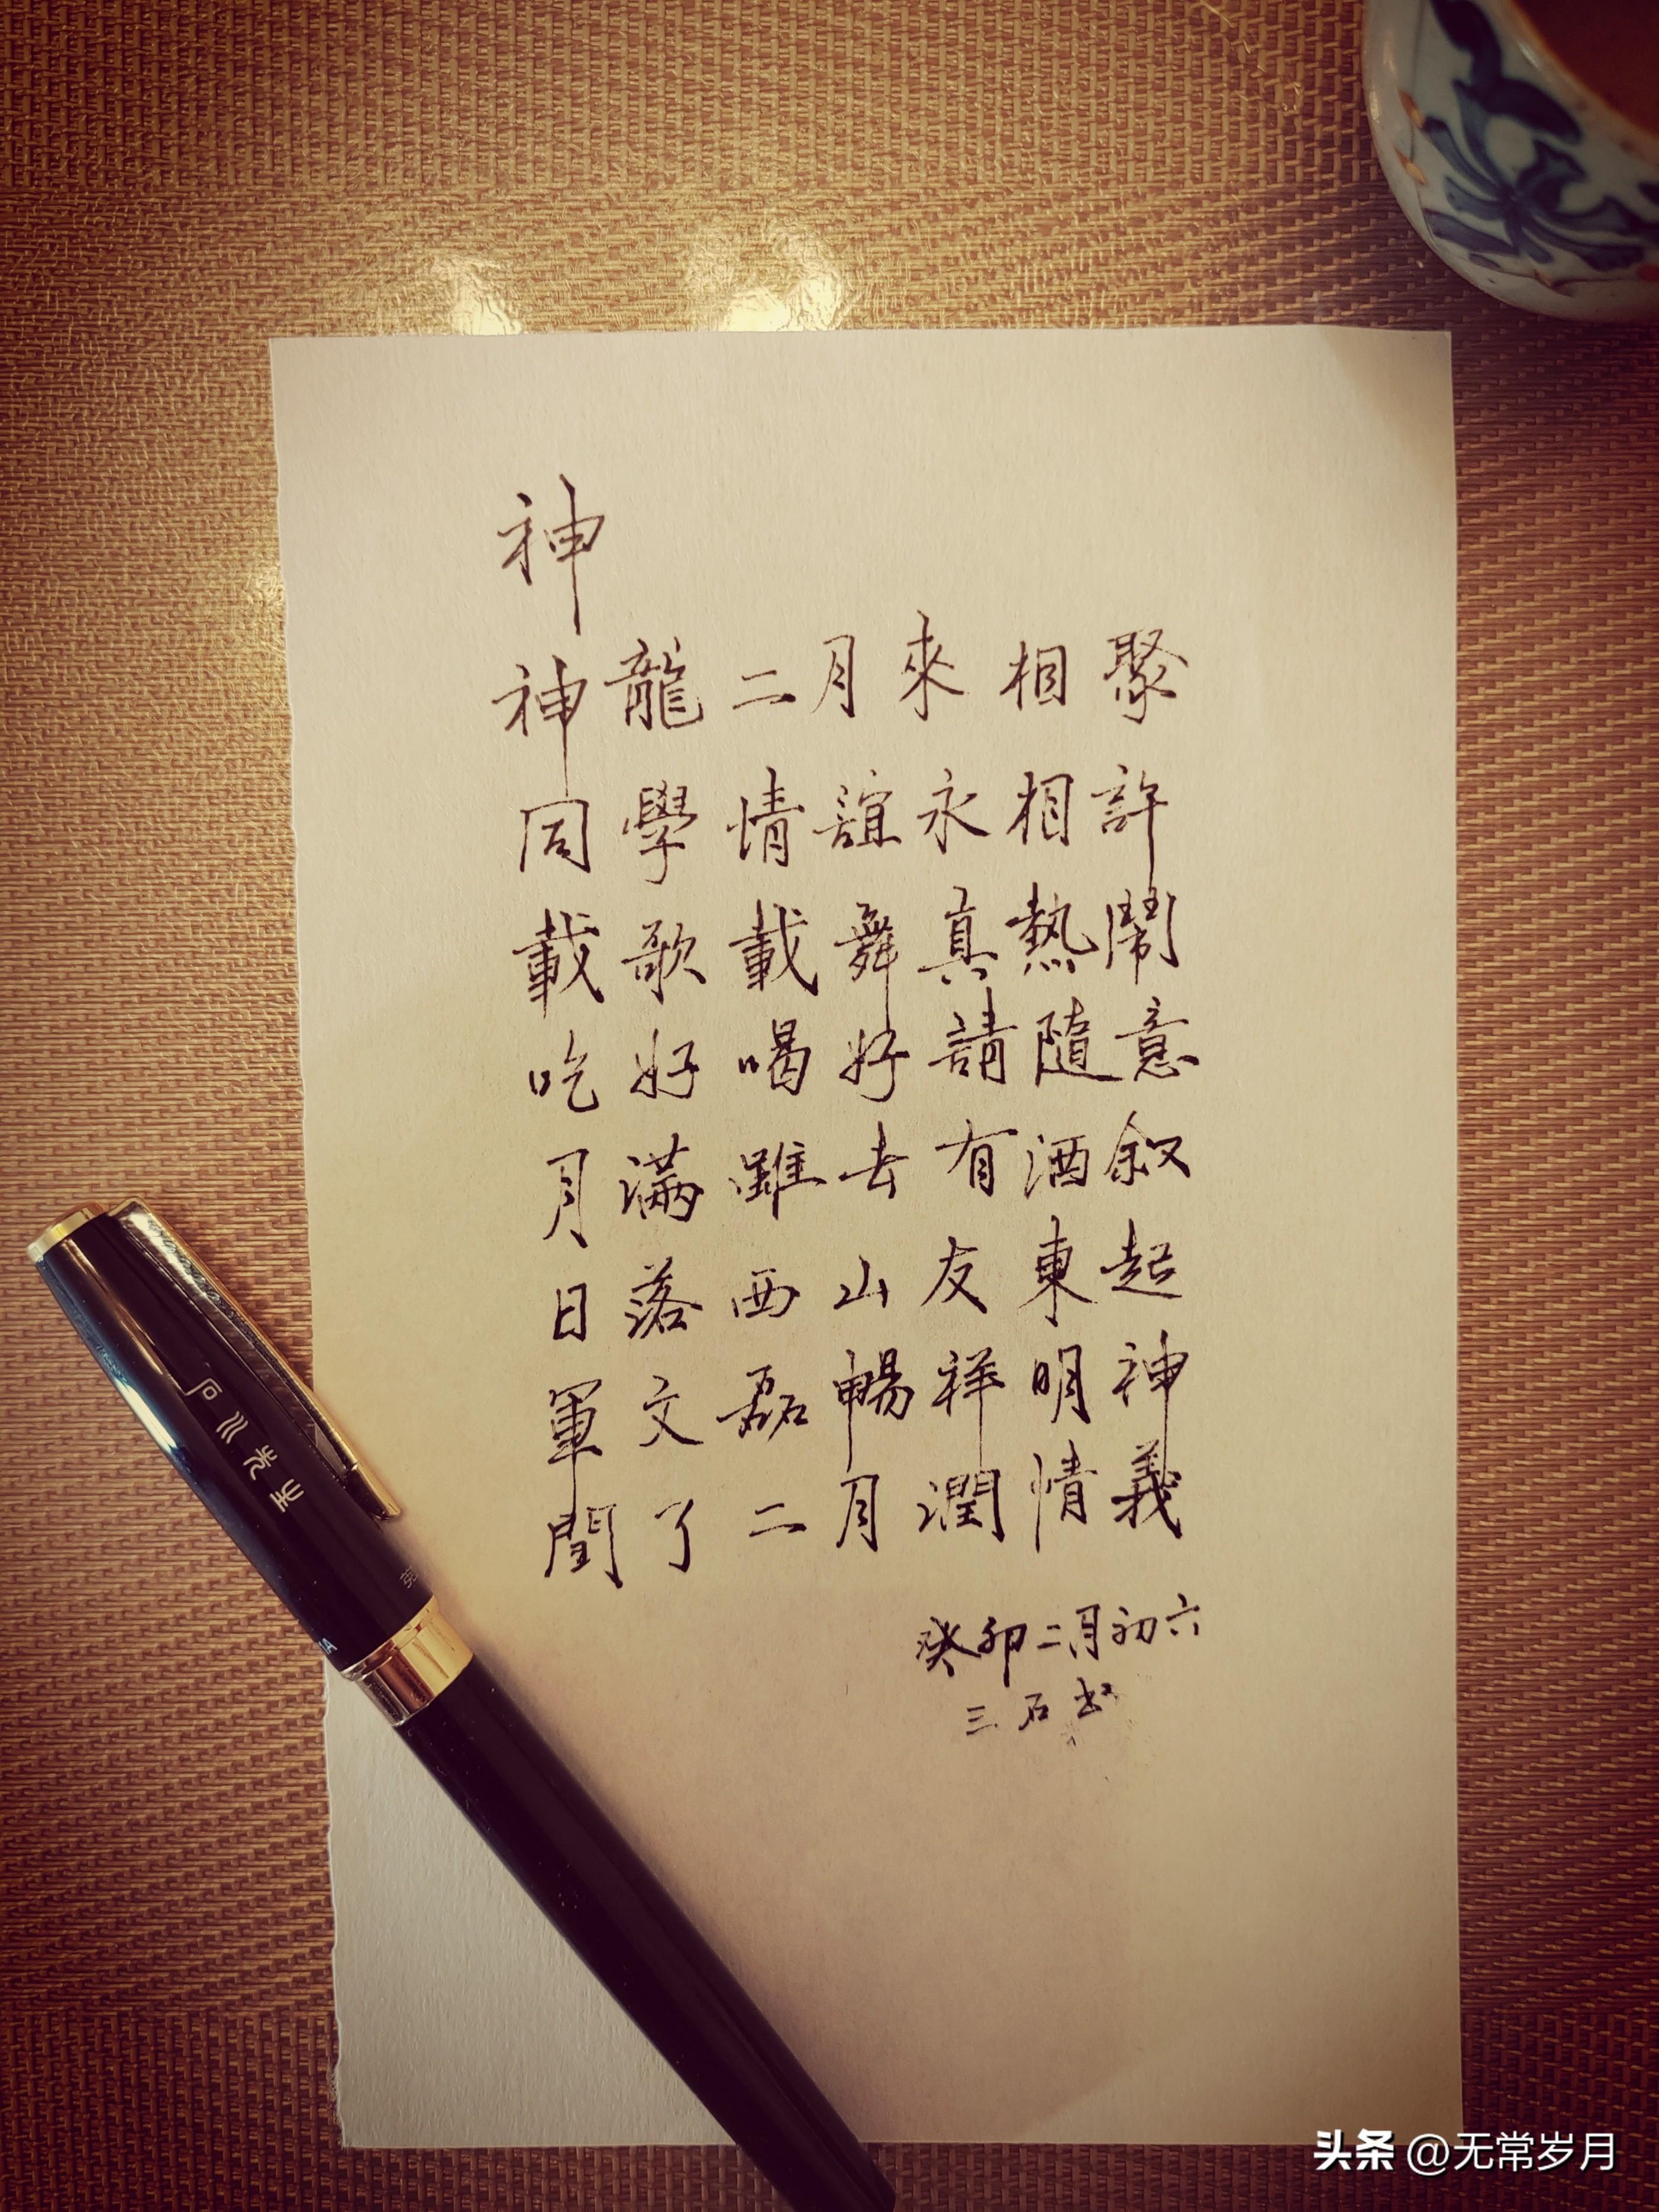 神
神龍二月來相聚
同學情誼永相許
載歌載舞真熱鬧
吃好喝好請隨意
月满雖去有酒叙
日落西山友東起
軍文磊暢祥明神
閏了二月潤情義
癸卯二月初六
三石书
头条 @无常岁月